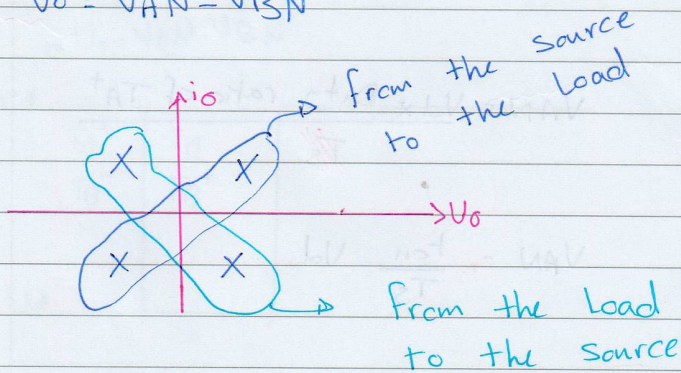 Vo = VAN - VBN
from the source
to the Load
io
X X
Vo
X X
from the Load
to the source